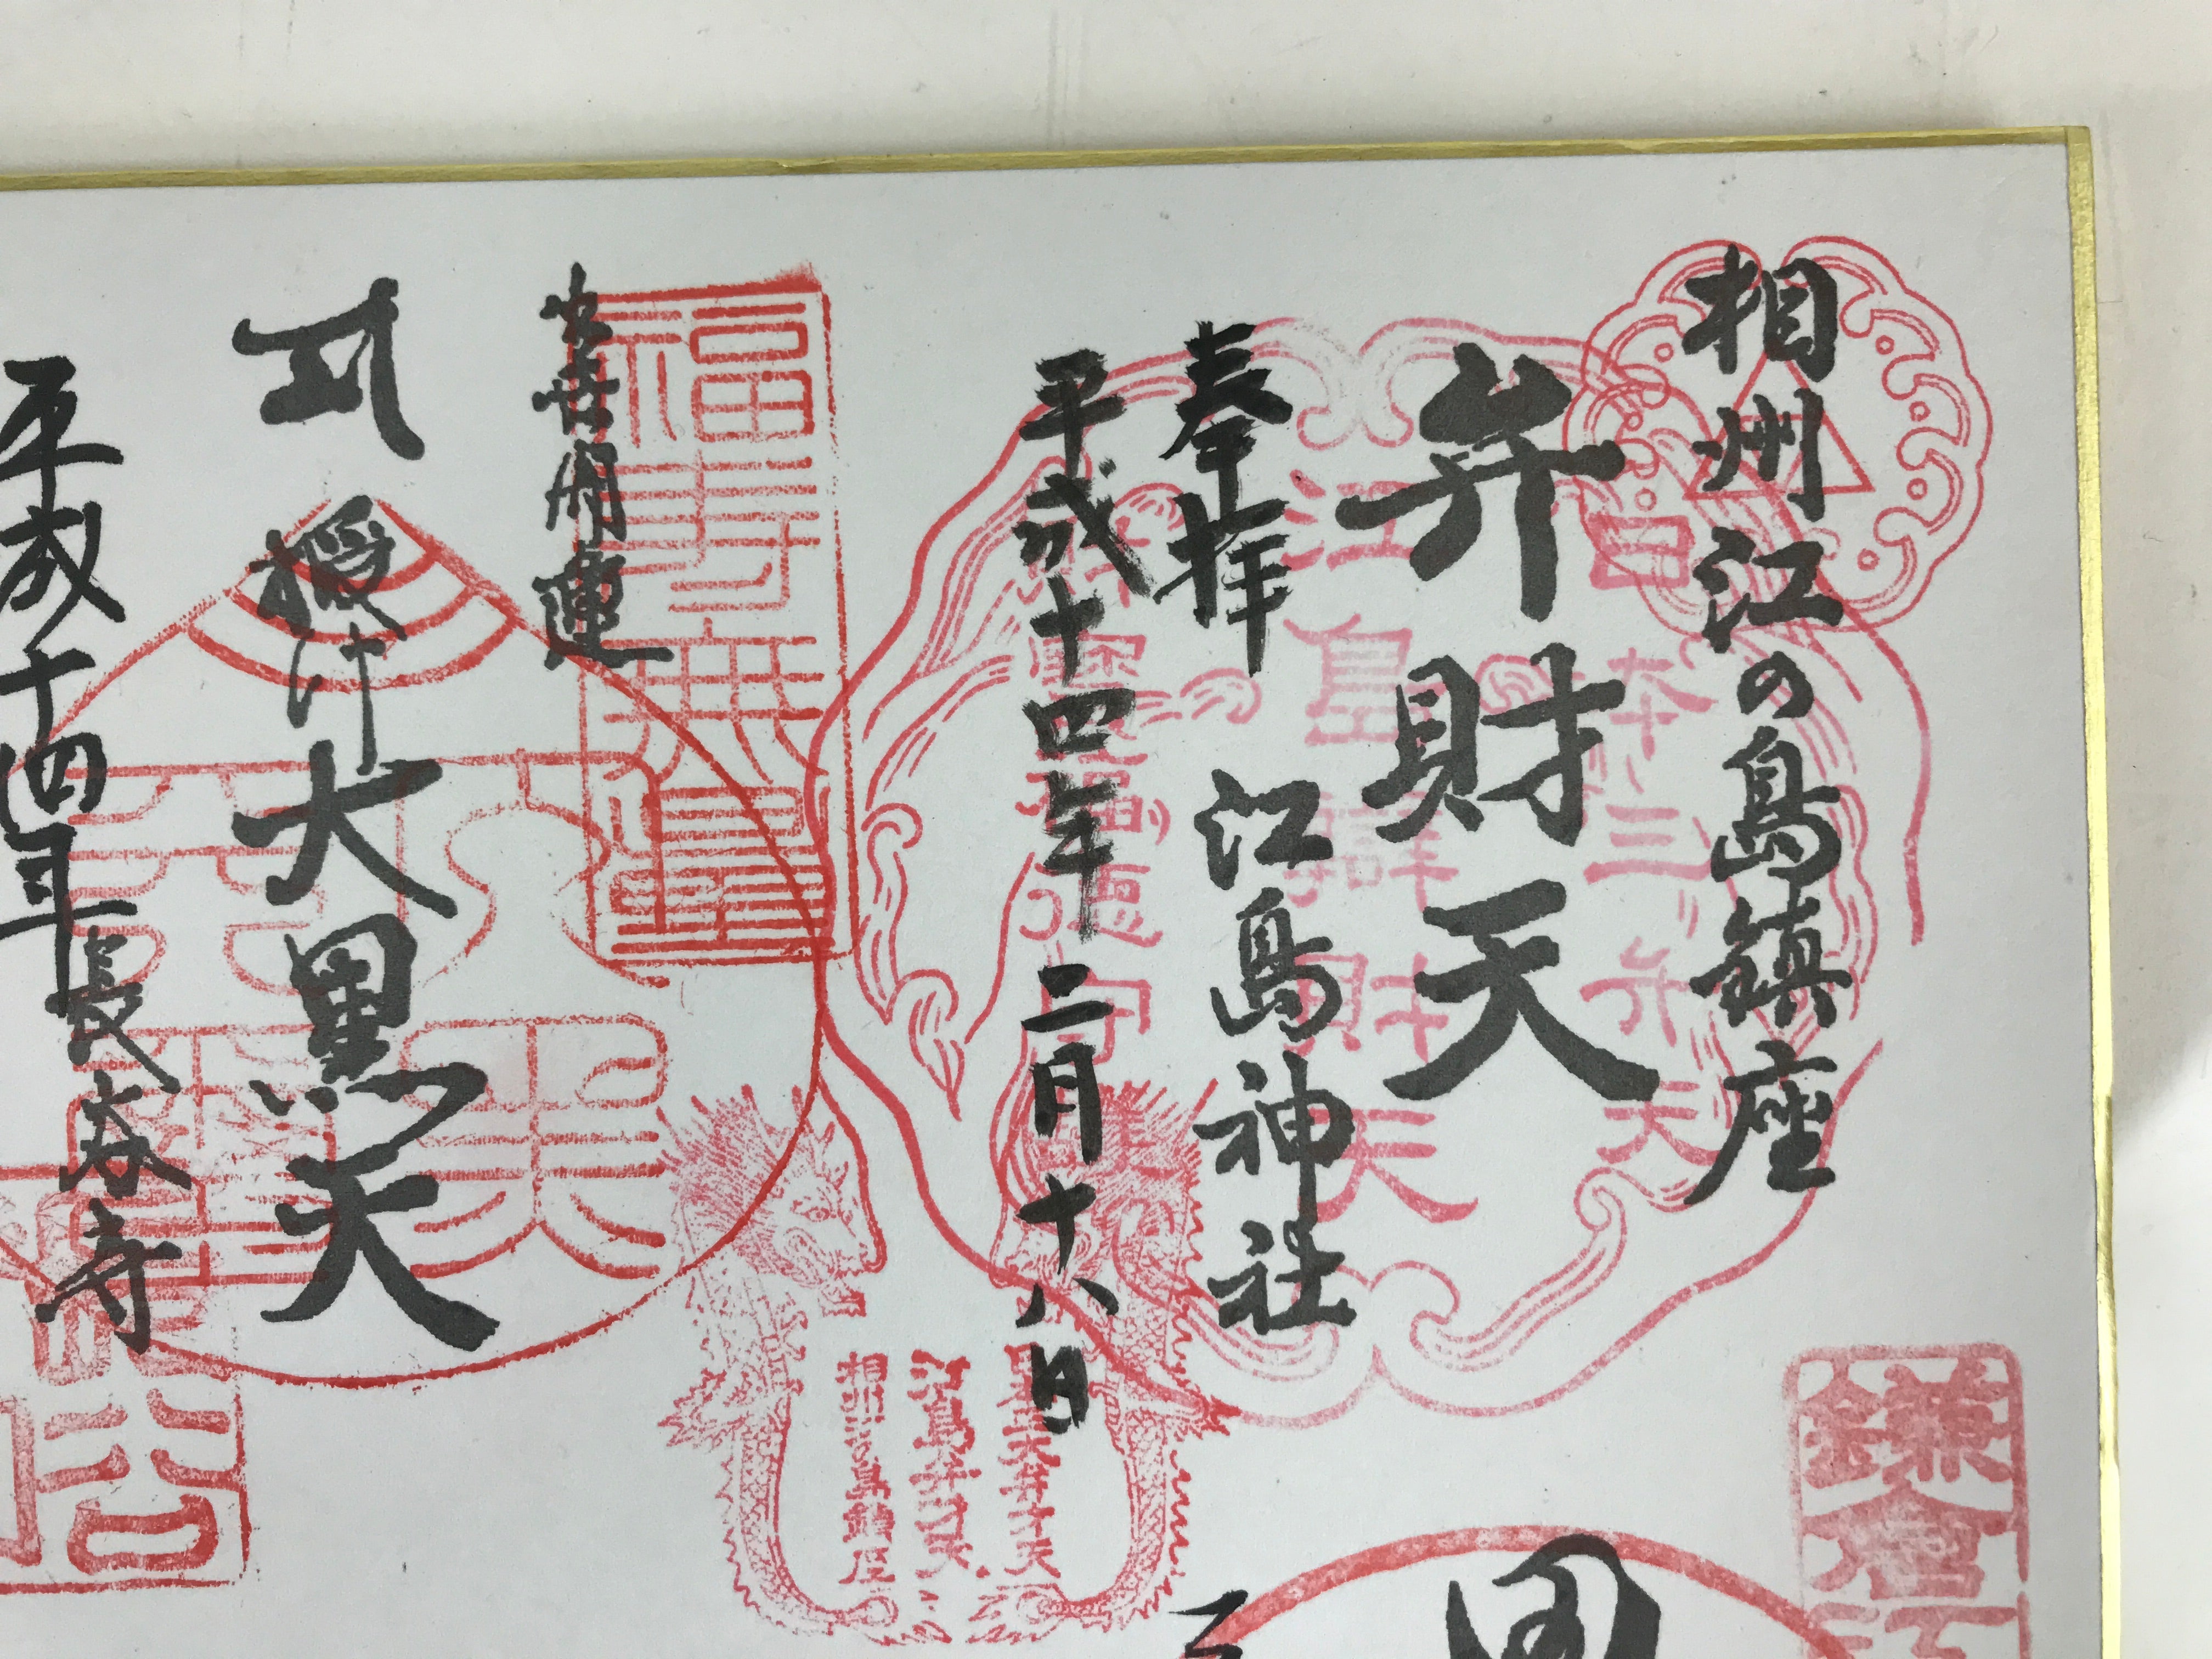 相州江の島鎮座
弁財天
奉拝
江島神社
平成十四年二月十八日
日本三弁天
江島
弁財天
守
福寿無量
開運
授け大黒天
平成十四年
長谷寺
江島弁財天
相州江の島鎮座
鎌倉江